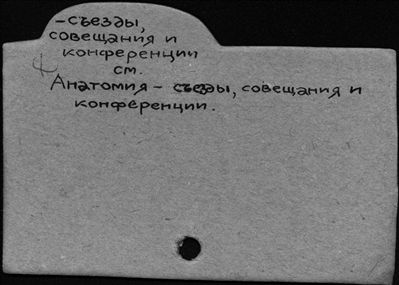 – съезды,
совещания и
конференции
см.
Анатомия – съезды, совещания и
конференции.